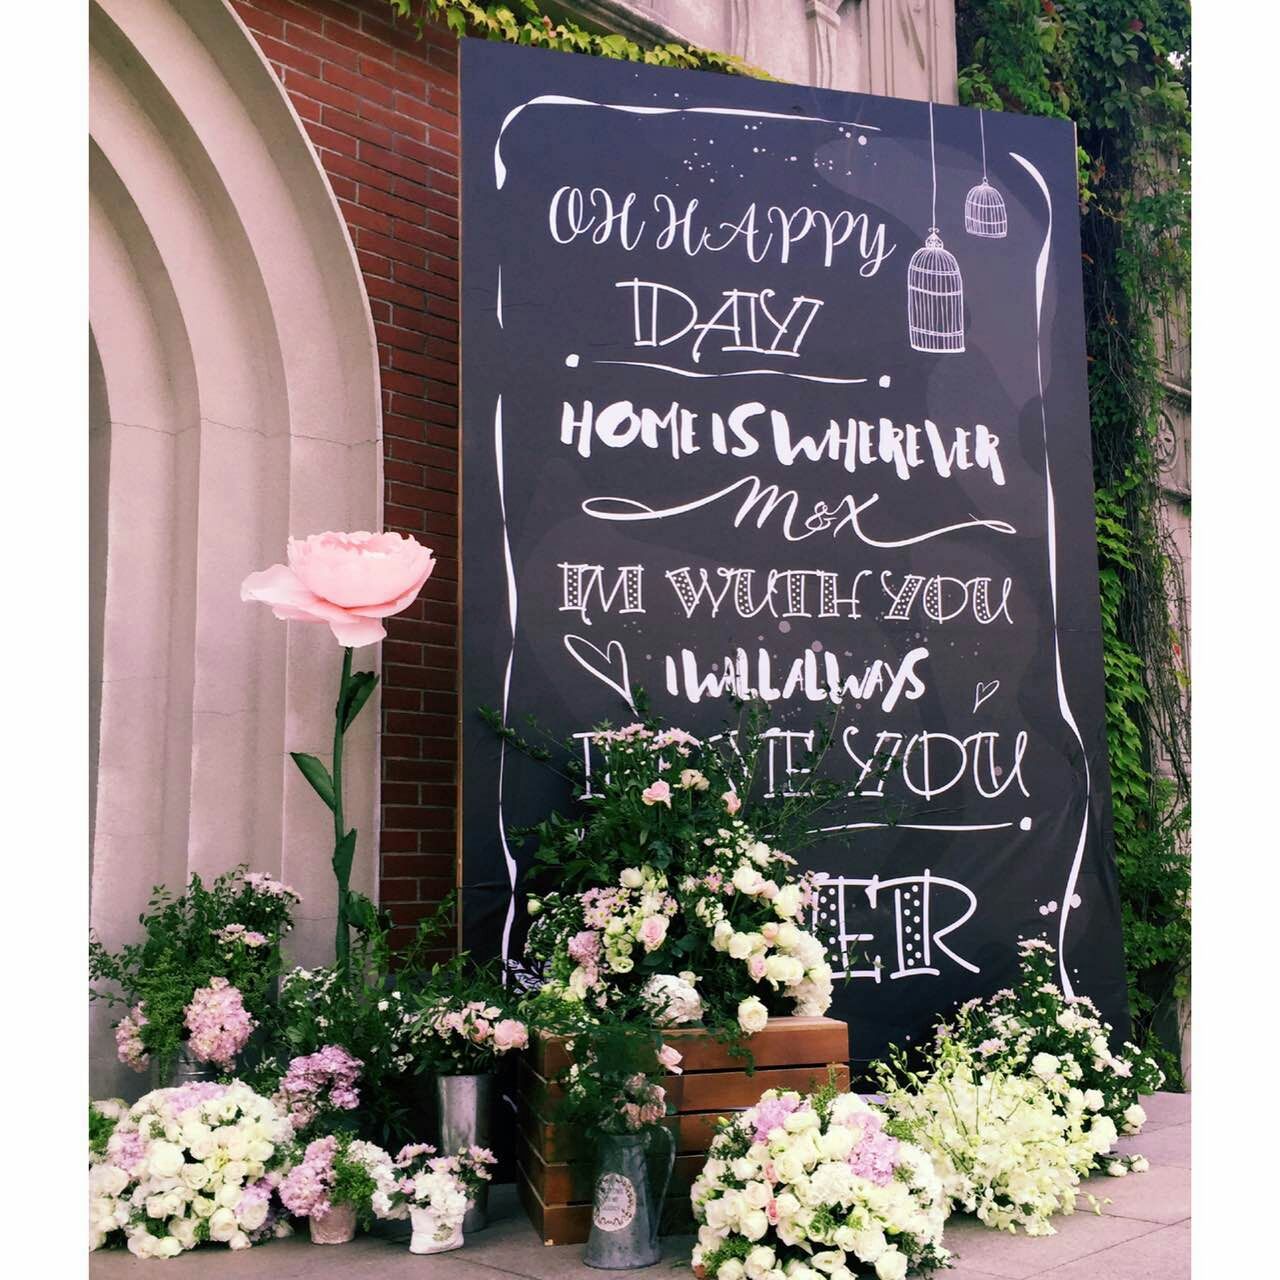 OH HAPPY
DAY!
HOME IS WHEREVER
M&X
IM WUTH YOU
I WALL ALWAYS
YOU